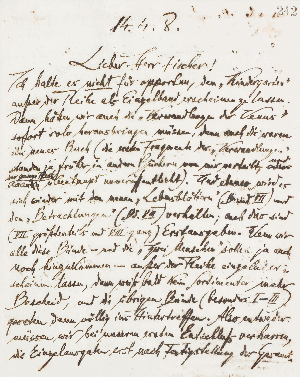 242
14. 4. 8.
Lieber Herr Fischer!
Ich halte es nicht für opportun, den „Kindergarten"
außer der Reihe als Einzelband erscheinen zu lassen.
Dann hätten wir auch die „Verwandlungen der Venus"
sofort solo herausbringen müssen, denn auch die waren
ein neues Buch (die ersten Fragmente der „Verwandlungen"
standen ja früher in andern Büchern von mir verteilt, und
waren überhaupt unveröffentlicht). Und ebenso wird es
sich wieder mit den neuen „Lebensblättern" (Band VII) und
den „Betrachtungen" (Bd. VIII) verhalten; auch dies sind
größtenteils und ganz Erstausgaben. Wenn wir
alle diese Bände – und die „Zwei Menschen" sollen ja auch
noch hinzukommen – außer der Reihe einzeln er-
scheinen lassen, dann weiß bald kein Sortimenter mehr
Bescheid, und die übrigen Bände (besonders I–III)
geraten dann völlig ins Hintertreffen. Also entweder
müssen wir bei unserm ersten Entschluß verharren,
die Einzelausgaben erst nach Fertigstellung der Gesamt-